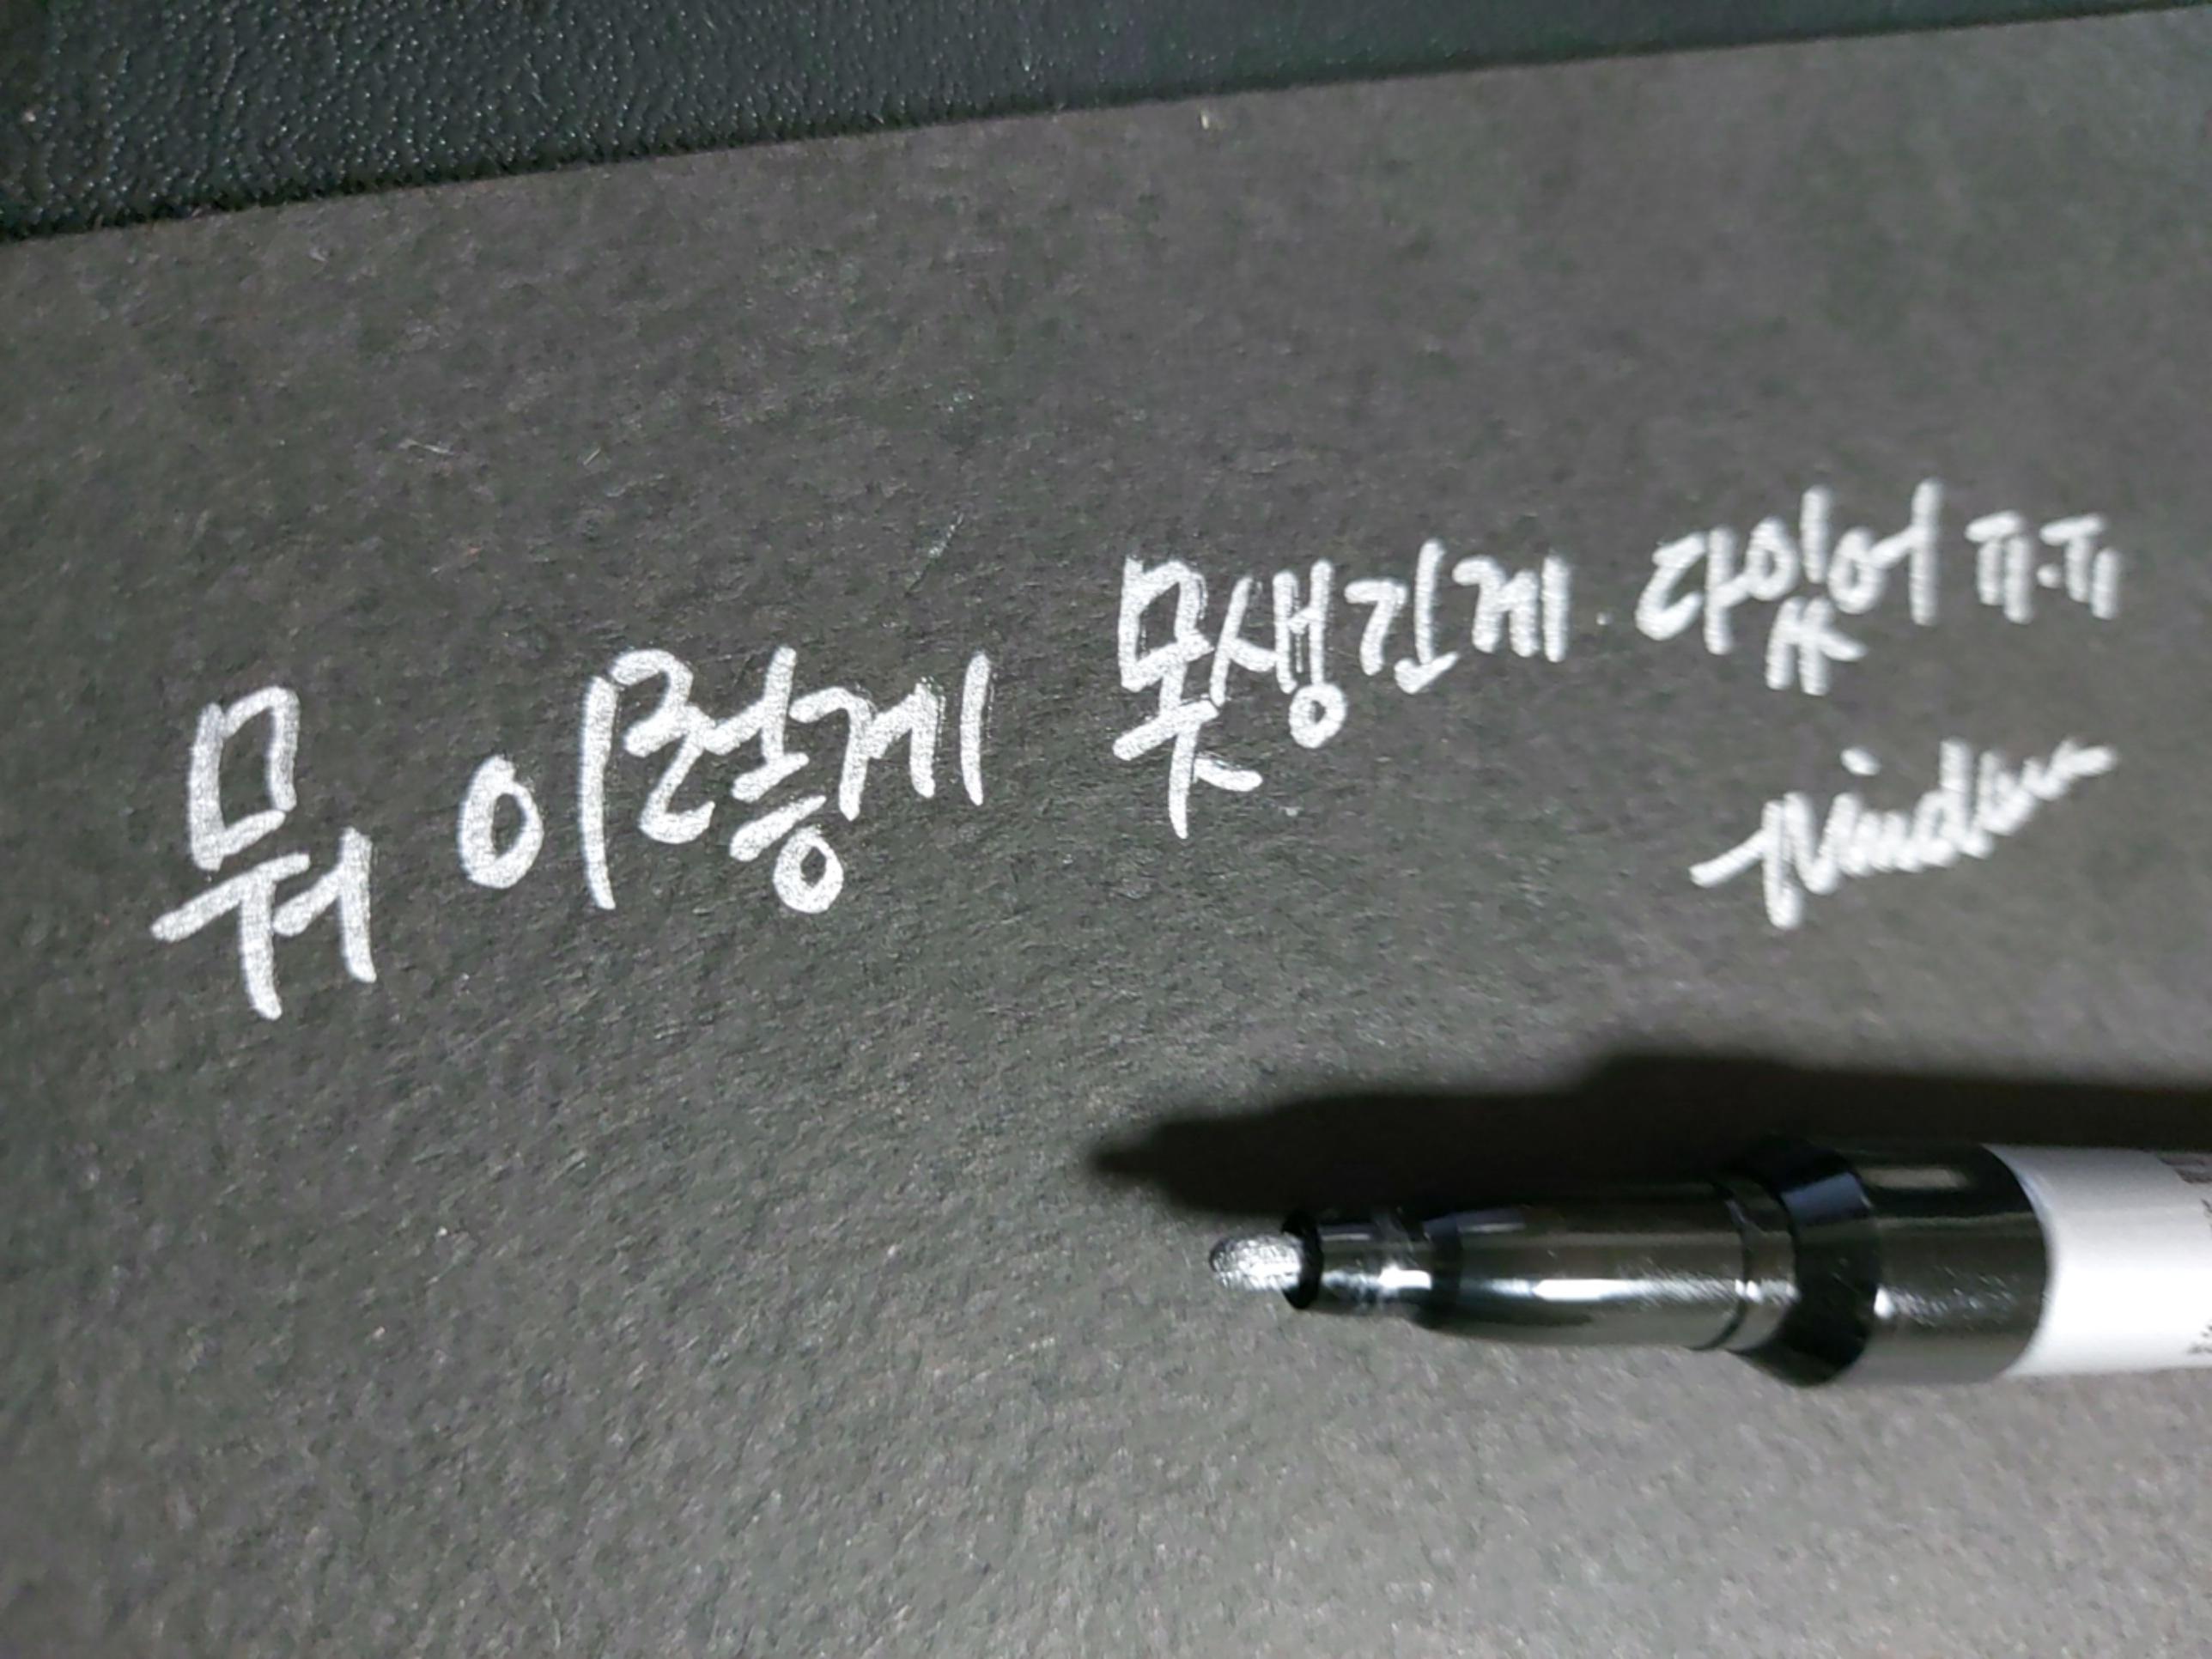 뭐 이렇게 못생긴게 다있어 ㅠ.ㅠ